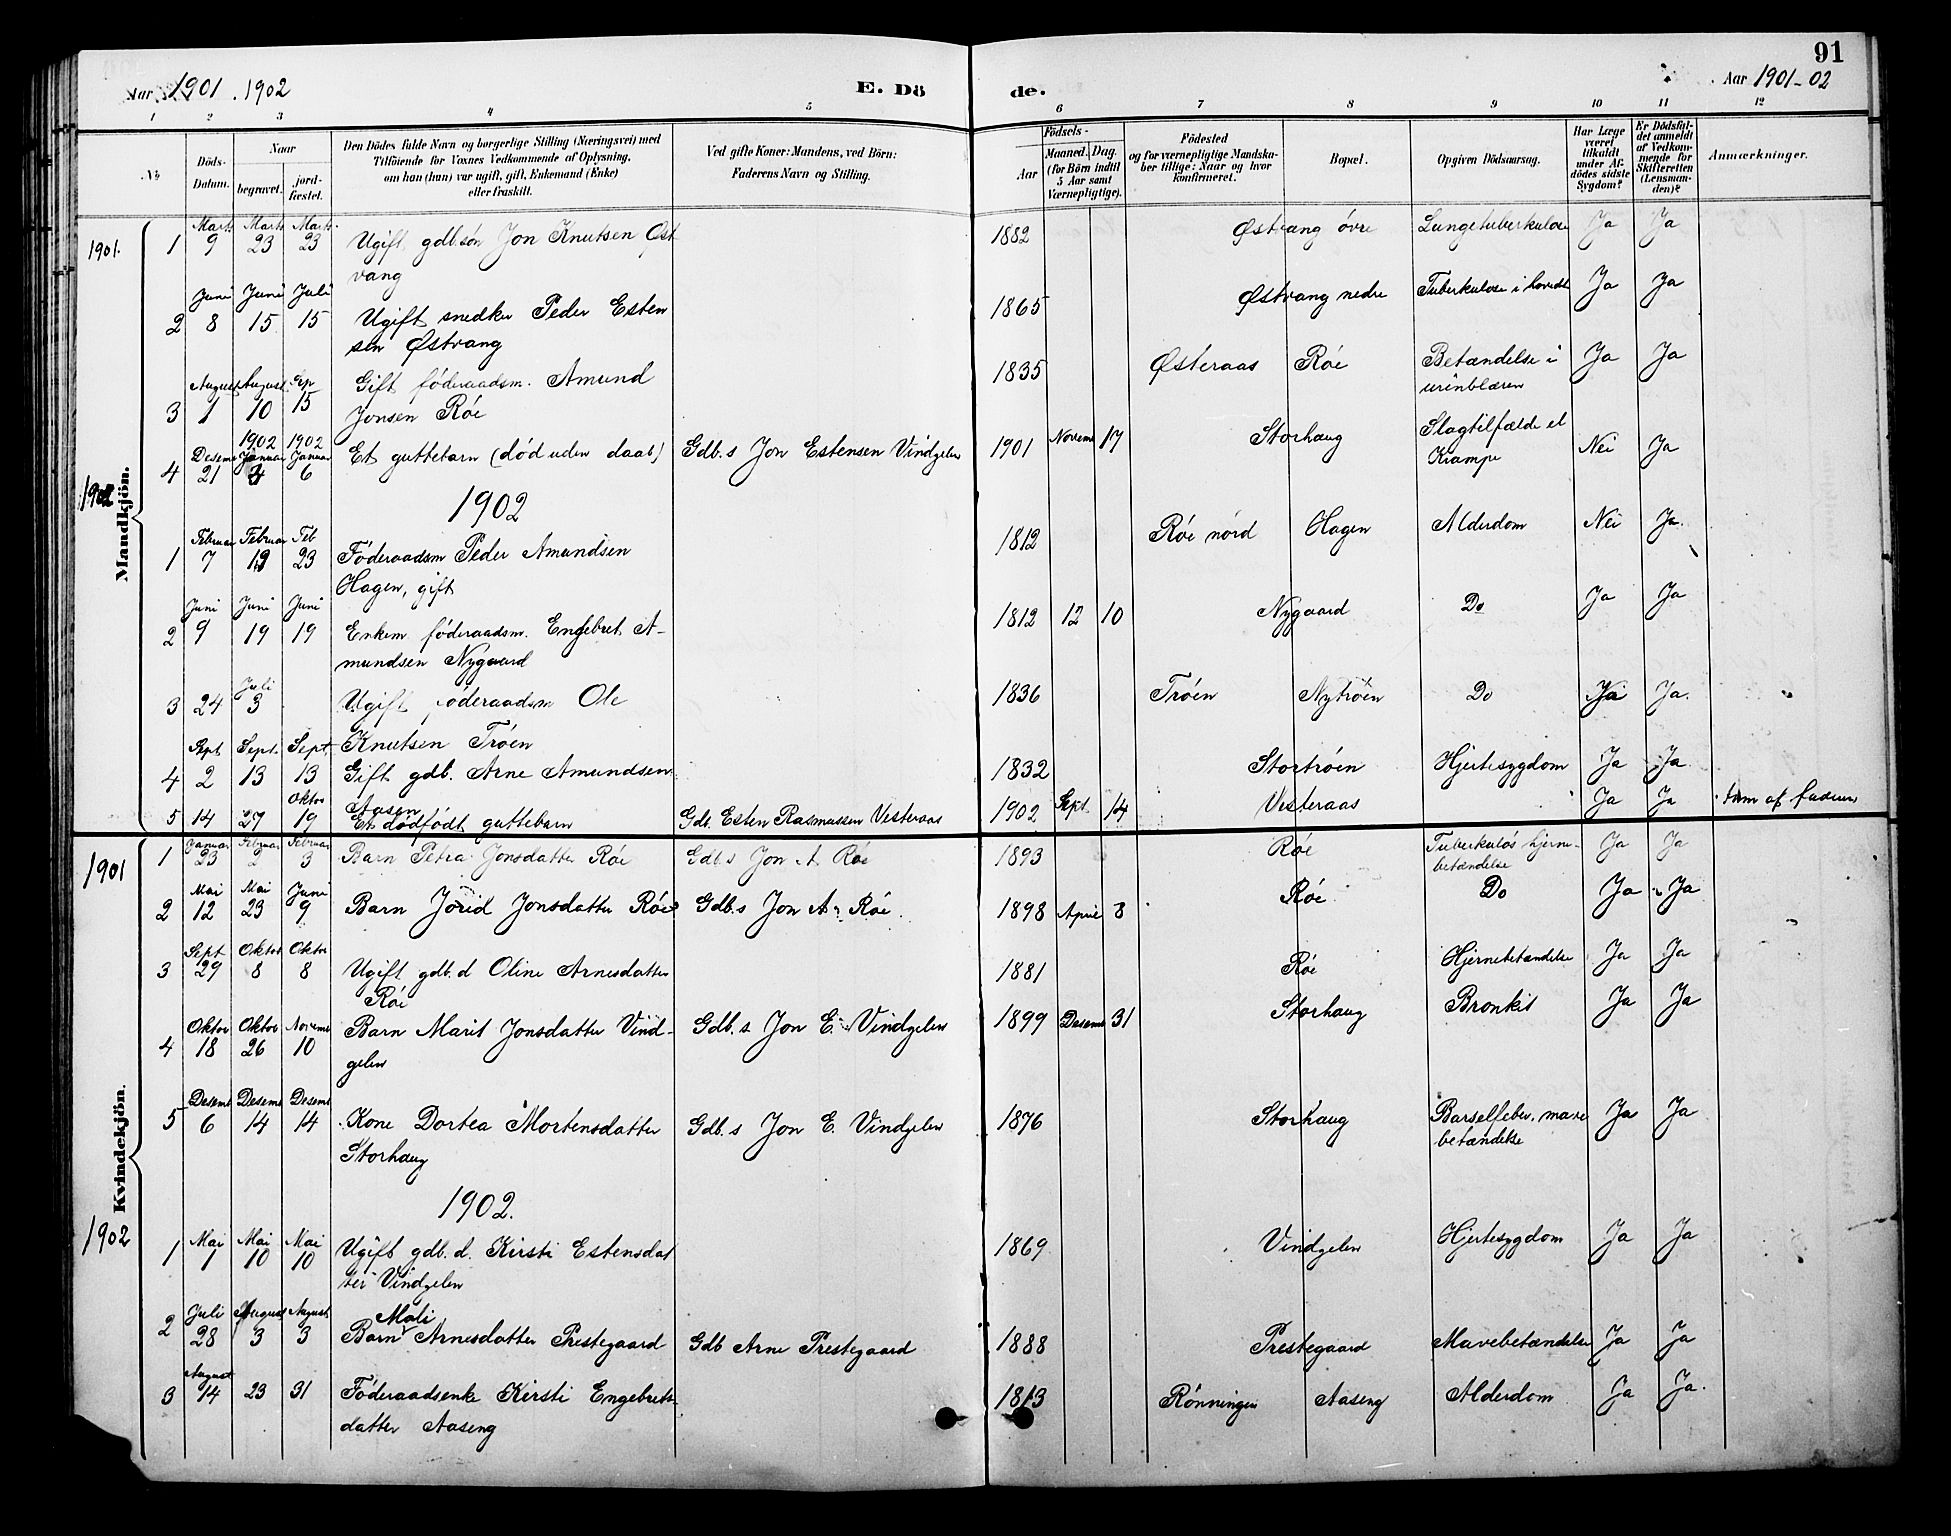 91
Aar 1901. 1902 E. Dö de. Aar 1901-02
1 2 3 4 5 6 7 8 9 10 11 12
No. Döds-Datum. Naar begravet. jord-fæstet. Den Dödes fulde Navn og borgerlige Stilling (Næringsvei) med Tilföiende for Voxnes Vedkommende af Oplysning, om han (hun) var ugift, gift, Enkemand (Enke) eller fraskilt. Ved gifte Koner: Mandens, ved Börn: Faderens Navn og Stilling. Födsels- Aar Maaned. Dag. (for Börn indtil 5 Aar samt Værnepligtige). Födested og for værnepligtige Mandska-ber tillige: Naar og hvor konfirmeret. Bopæl. Opgiven Dödsaarsag. Har Læge været tilkaldt under Af-dödes sidste Sygdom? Er Dödsfal-det anmeldt af Vedkom-mende for Skifteretten (Lensman-den)? Anmærkninger.
Mandkjön.
1901.
1 Marts 9 Marts 23 Marts 23 Ugift gdb.søn Jon Knutsen Øst 1882 Østvang övre Lungetuberkulose Ja Ja
vang
2 Juni 8 Juni 15 Juli 15 Ugift snedker Peder Esten 1865 Østvang nedre Tuberkulose i hovedet Ja Ja
sen Østvang
3 August 1 August 10 Sep 15 Gift föderaadsm. Amund 1835 Østeraas Röe Betændelse i Ja Ja
Jonsen Röe urinblæren
4 Desemb 21 1902 Januar 3 1902 Januar 6 Et guttebarn (död uden daab) Gdb.s Jon Estensen Vindgelen 1901 Novem 17 Storhaug Slagtilfælde el Nei Ja
Krampe
1902
1902
1 Februar 7 Februar 13 Feb 23 Föderaadsm Peder Amundsen 1812 Röe nörd Hagen Alderdom Nei Ja.
Hagen, gift
2 Juni 9 Juni 19 Juni 19 Enkem föderaadsm. Engebret A- 1812 12 10 Nygaard Do Ja Ja
mundsen Nygaard
3 24 Juli 3 Ugift föderaadsm Ole 1836 Tröen Nytröen Do Ja Ja.
Knutsen Tröen
4 Sept 2 Sept. 13 Sept 13 Gift gdb. Arne Amundsen 1832 Stortröen Hjertesygdom Ja Ja
Aasen
5 14 27 Oktor 19 Et dödfödt guttebarn Gdb. Esten Rasmussen Vesteraas 1902 Sept 14 Vesteraas Ja Ja af faderen
Kvindekjön.
1901
1 Januar 23 Februar 2 Februar 3 Barn Petra Jonsdatter Röe Gdb.s Jon A. Röe 1893 Röe Tuberkulös hjerne- Ja Ja
betændelse
2 Mai 12 Mai 23 Juni 9 Barn Jörid Jonsdatter Röe Gdb.s Jon A. Röe. 1898 April 8 Röe Do Ja Ja
3 Sept 29 Oktor 8 Oktor 8 Ugift gdb.d Oline Arnesdatter 1881 Röe Hjernebetændelse Ja Ja
Röe
4 Oktor 18 Oktor 26 Novemb 10 Barn Marit Jonsdatter Vind- Gdb.s Jon E. Vindgelen 1899 Desemb 31 Storhaug Bronkit Ja Ja
gelen
5 Desemb 6 Desemb 14 Desemb 14 Kone Dortea Mortensdatter Gdb.s Jon E. Vindgelen 1876 Storhaug Barselfeber, mave Ja Ja
Storhaug betændelse
1902.
1902
1 Mai 1 Mai 10 Mai 10 Ugift gdb.d. Kirsti Estensdat 1869 Vindgelen Hjertesygdom Ja Ja
ter Vindgelen
2 Juli 28 August 3 August 3 Barn Mali Arnesdatter Prestegaard Gdb Arne Prestegaard 1888 Prestegaard Mavebetændelse Ja Ja
3 August 14 23 31 Föderaadsenke Kirsti Engebrets- 1813 Rönningen Aaseng Alderdom Ja Ja.
datter Aaseng